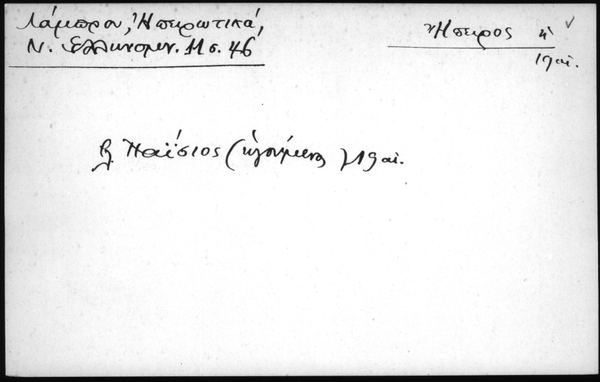 Λάμπρου, Ἠπειρωτικά,
Ν. Ἑλληνομν. 11 σ. 46
Ἤπειρος
19 αἰ.
Παΐσιος (ἡγούμενος) 19 αἰ.